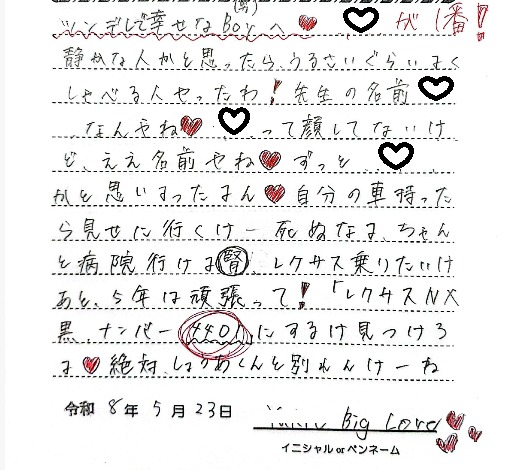 ツンデレで幸せなBoyへ♥ ♡が1番!
(男)
静かな人かと思ったら、うるさいぐらいよく
しゃべる人やったわ!先生の名前♡
、なんやね♥♡って顔してないけ
ど、ええ名前やね♥ずっと♡
かと思いよったもん♥自分の車持った
ら見せに行くけー死ぬなよ、ちゃん
と病院行けよ(腎)、レクサス乗りたいけ
あと、5年は頑張って!「レクサスNX
黒、ナンバー4401にするけ見つけろ
よ♥絶対、しょうあくんと別れんけーね
令和 8年 5月 23日
Big Love
イニシャルorペンネーム